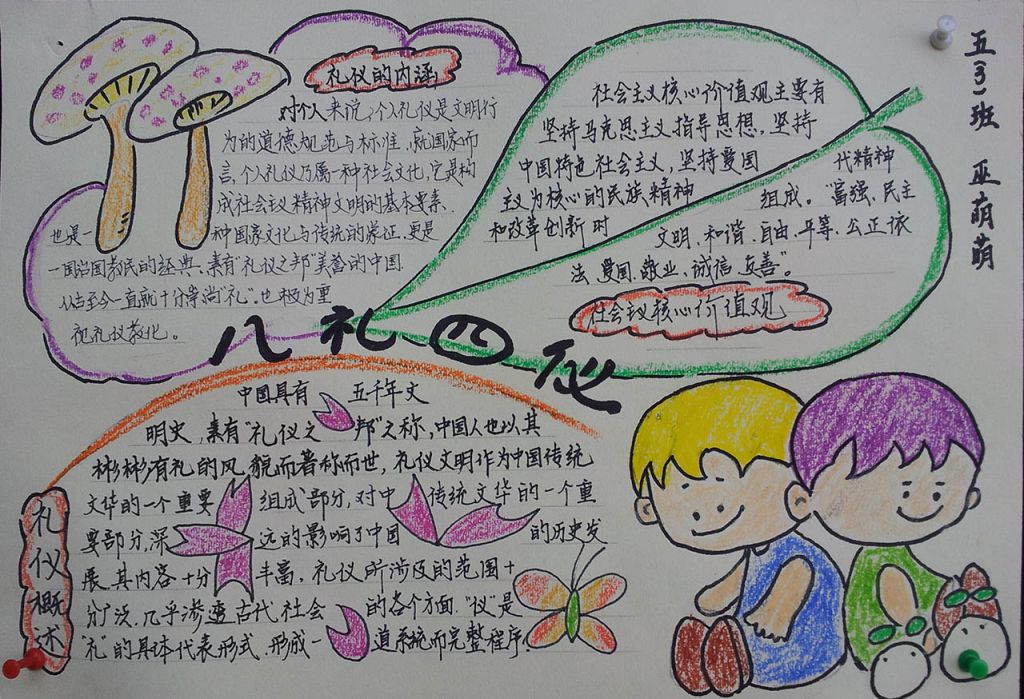 礼仪的内涵
对个人来说,个人礼仪是文明行
为的道德规范与标准,就国家而
言,个人礼仪乃属一种社会文化,它是构
成社会主义精神文明的基本要素,
也是一种国家文化与传统的象征,更是
一国治国教民的经典、素有"礼仪之邦"美誉的中国
从古至今一直就十分崇尚"礼"。也极为重
视礼仪教化。
社会主义核心价值观主要有
坚持马克思主义指导思想,坚持
中国特色社会主义,坚持爱国
主义为核心的民族精神
和改革创新时
代精神
组成。"富强、民主
文明、和谐、自由、平等、公正、依
法、爱国、敬业、诚信、友善"。
社会主义核心价值观
五(3)班 巫萌萌
八礼四仪
礼仪概述
中国具有五千年文
明史,素有"礼仪之邦"之称,中国人也以其
彬彬有礼的风貌而著称而世,礼仪文明作为中国传统
文华的一个重要组成部分,对中传统文华的一个重
要部分,深远的影响了中国的历史发
展,其内容十分丰富,礼仪所涉及的范围十
分广泛,几乎渗透古代社会的各个方面."仪"是
"礼"的具体代表形式,形成一道系统而完整程序.